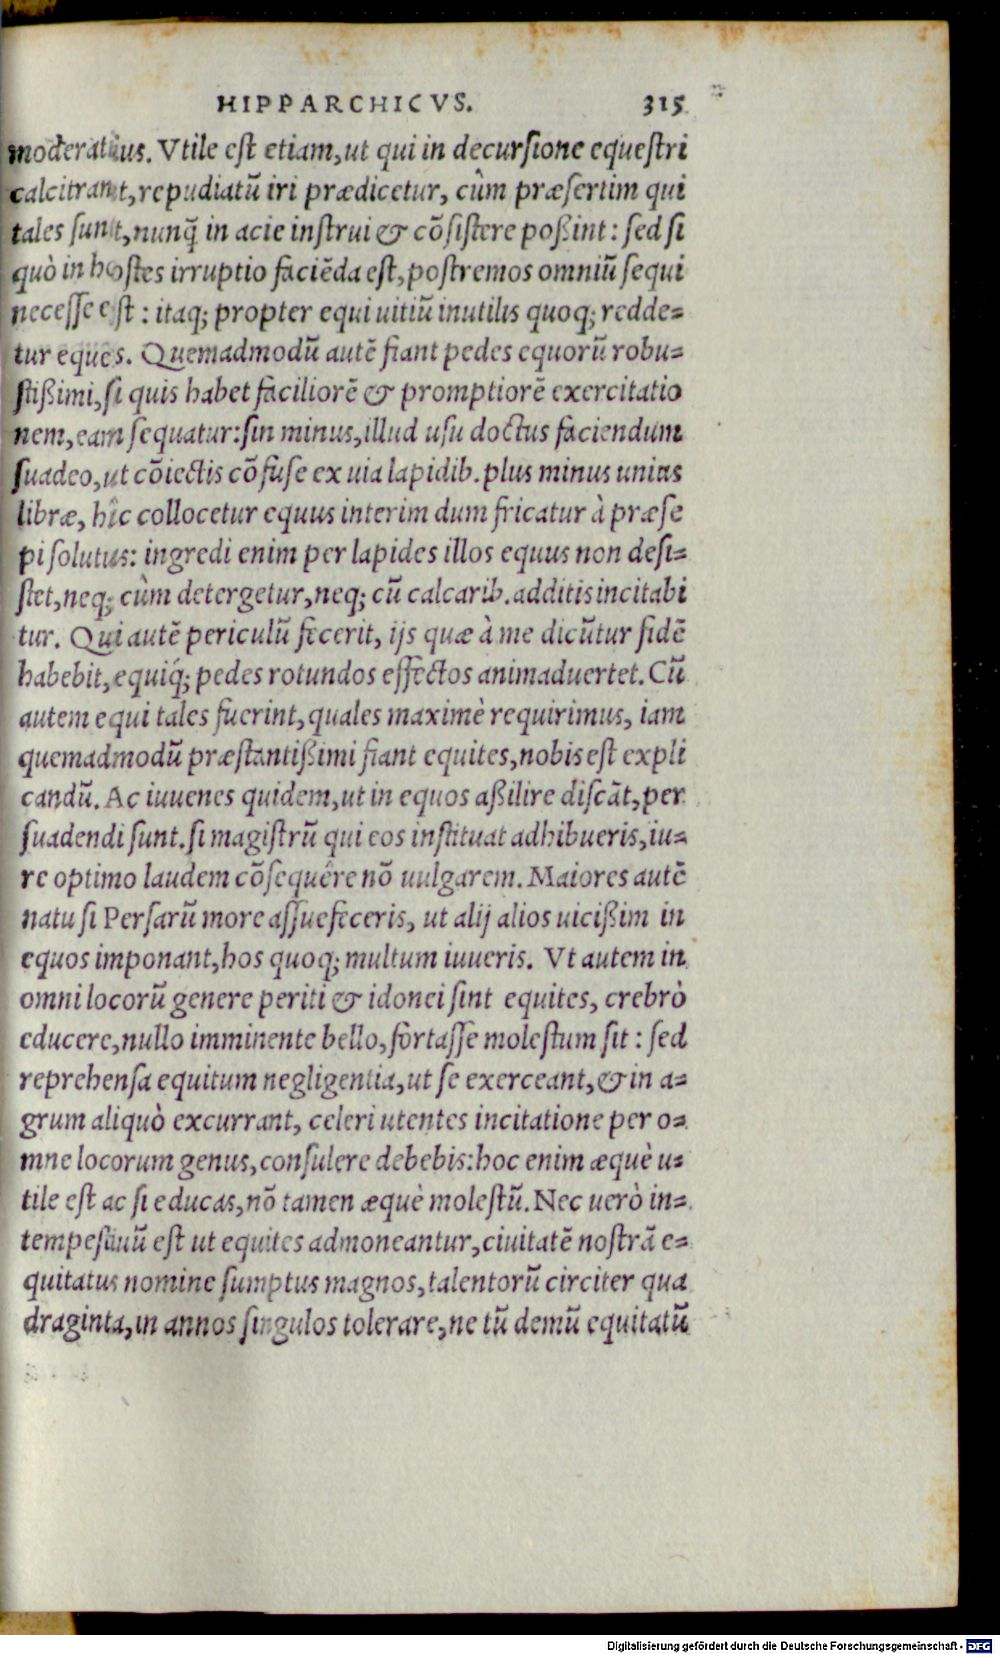 HIPPARCHICVS. 315
moderatius. Vtile est etiam, ut qui in decursione equestri
calcitrant, repudiatū iri prædicetur, cùm præsertim qui
tales sunt, nunq̃ in acie instrui & cōsistere poßint: sed si
quò in hostes irruptio faciēda est, postremos omniū sequi
necesse est: itaq; propter equi uitiū inutilis quoq; redde=
tur eques. Quemadmodū autē fiant pedes equorū robu=
stißimi, si quis habet faciliorē & promptiorē exercitatio
nem, eam sequatur: sin minus, illud usu doctus faciendum
suadeo, ut cōiectis cōfuse ex uia lapidib. plus minus unius
libræ, hîc collocetur equus interim dum fricatur à præse
pi solutus: ingredi enim per lapides illos equus non desi=
stet, neq; cùm detergetur, neq; cū calcarib. additis incitabi
tur. Qui autē periculū fecerit, ijs quæ à me dicūtur fidē
habebit, equiq́; pedes rotundos effectos animaduertet. Cū
autem equi tales fuerint, quales maximè requirimus, iam
quemadmodū præstantißimi fiant equites, nobis est expli
candū. Ac iuuenes quidem, ut in equos aßilire discāt, per
suadendi sunt. si magistrū qui eos instituat adhibueris, iu=
re optimo laudem cōsequêre nō uulgarem. Maiores autē
natu si Persarū more assuefeceris, ut alij alios uicißim in
equos imponant, hos quoq; multum iuueris. Vt autem in
omni locorū genere periti & idonei sint equites, crebrò
educere, nullo imminente bello, fortasse molestum sit: sed
reprehensa equitum negligentia, ut se exerceant, & in a=
grum aliquò excurrant, celeri utentes incitatione per o=
mne locorum genus, consulere debebis: hoc enim æquè u=
tile est ac si educas, nō tamen æquè molestū. Nec uerò in=
tempestiuū est ut equites admoneantur, ciuitatē nostrā e=
quitatus nomine sumptus magnos, talentorū circiter qua
draginta, in annos singulos tolerare, ne tū demū equitatū
Digitalisierung gefördert durch die Deutsche Forschungsgemeinschaft - DFG